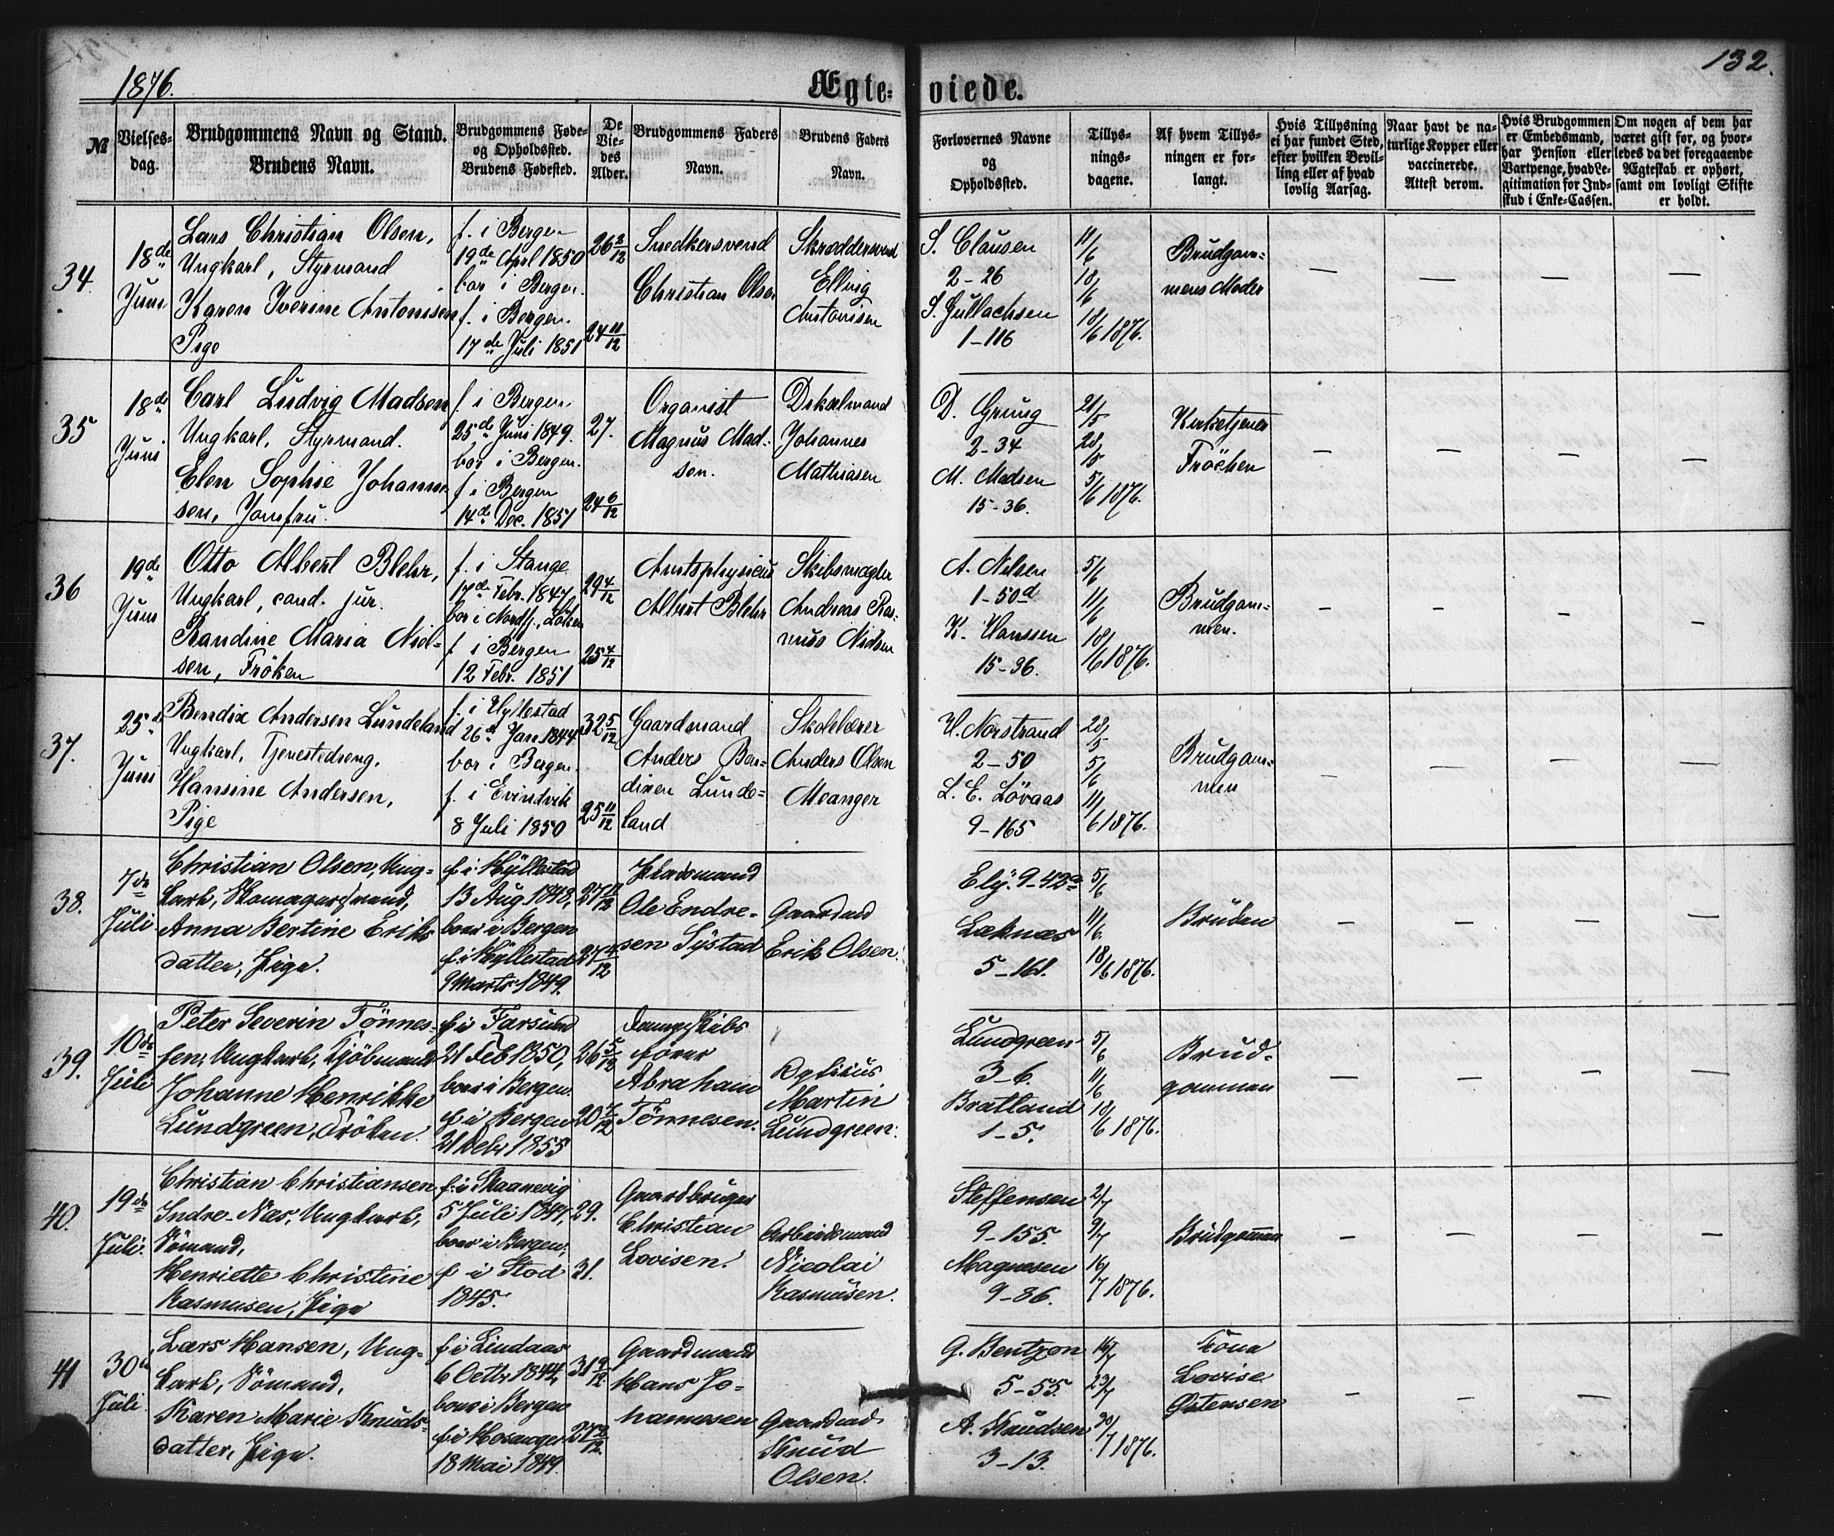 1876.
Ægte-
viede.
132.
№
Vielses-
dag.
Brudgommens Navn og Stand.
Brudens Navn.
Brudgommens Føde-
og Opholdssted.
Brudens Fødested.
De
Vie-
des
Alder.
Brudgommens Faders
Navn.
Brudens Faders
Navn.
Forlovernes Navne
og
Opholdssted.
Tillys-
nings-
dagene.
Af hvem Tillys-
ningen er for-
langt.
Hvis Tillysning
ei har fundet Sted,
efter hvilken Bevil-
ling eller af hvad
lovlig Aarsag.
Naar havt de na-
turlige Kopper eller
vaccinerede.
Attest derom.
Hvis Brudgommen
er Embedsmand,
har Pension eller
Vartpenge, hvad Le-
gitimation for Ind-
skud i Enke-Cassen.
Om nogen af dem har
været gift før, og hvor-
ledes da det foregaaende
Ægteskab er ophørt,
samt om lovligt Skifte
er holdt.
34
18de
Juni
Lars Christian Olsen,
Ungkarl, Styrmand
Karen Iverine Antonisen
Pige
f. i Bergen
19de April 1850
bor i Bergen.
f. i Bergen.
17de Juli 1851
26 2/12
24 11/12
Snedkersvend
Christian Olsen
Skræddersvend
Elling
Antonisen
S. Clausen
2-26
S. Gullachsen
1-116
11/6
18/6
18/6 1876.
Brudgom-
mens Moder
35
18de
Juni
Carl Ludvig Madsen
Ungkarl, Styrmand.
Elen Sophie Johanne-
sen, Jomfru.
f. i Bergen.
25de Juni 1849.
bor i Bergen.
f. i Bergen
14de Dec. 1851
27.
24 6/12
Organist
Magnus Mad-
sen.
Johannes
Mathiasen
D. Grung
2-34
M. Madsen
15-36.
21/5
28/5
5/6 1876.
Kirketjener
Fröchen
36
19de
Juni
Otto Albert Blehr,
Ungkarl, cand. jur.
Randine Maria Niel-
sen, Fröken
f. i Stange
17de Febr. 1847
f. i Bergen
12 Febr. 1851
29 4/12
25 4/12
Amtsphysicus
Albert Blehr
Skibsmægler
Andreas Ras-
mus Nielsen
A. Nilsen
1-50d
K. Hanssen
15-36.
5/6
11/6
18/6 1876.
Brudgom-
men.
37.
25de
Juni
Bendix Andersen Lundeland
Ungkarl, Tjenestedreng,
Hansine Andersen,
Pige
f. i Hyllestad
26de Jan. 1844
bor i Bergen.
f. i Evindvik
8 Juli 1850
32 5/12
25 11/12
Gaardmand
Anders Ben-
dixen Lunde-
land.
Skolelærer
Anders Olsen
Meanger
H. Norstrand
2-50
L. E. Lövaas
9-165
28/5
5/6
11/6 1876.
Brudgom-
men
38.
7de
Juli
Christian Olsen, Ung-
karl, Skomagersvend,
Anna Bertine Eriks-
datter, Pige.
f. i Hyllestad
13 Aug. 1848,
boer i Bergen
f. i Hyllestad
9 Marts 1849.
27 11/12
27 4/12
Pladsmand
Ole Endre-
sen Systad
Gaardmd
Erik Olsen.
9-42a
Laknæs
5-161.
5/6
11/6
18/6 1876.
Bruden
39.
10de
Juli
Peter Severin Tönnes-
sen, Ungkarl, Kjöbmand
Johanne Henrikke
Lundgreen, Fröken.
f. i Farsund
21 Feb 1850,
boer i Bergen.
f. i Bergen
21 Debr 1855
26 5/12
20 7/12
Dampskibs
förer
Abraham
Tönnesen.
Martin
Lundgreen.
Lundgreen
3-6.
Bratland
1-5.
5/6
11/6
18/6 1876.
Brud-
gommen
40.
19de
Juli.
Christian Christiansen
Indre-Næs, Ungkarl,
Sömand,
Henriette Christine
Rasmusen, Pige
f. i Skaanevig
5 Juli 1847,
boer i Bergen.
f. i Stod
1845.
29.
31.
Gaardbruger
Christian
Lovisen.
Arbeidsmand
Nicolai
Rasmusen.
Steffensen
9-155.
Magnesen
9-86.
2/7
9/7
16/7 1876.
Brudgommen
41
30de
Juli
Lars Hansen, Ung-
karl, Sömand,
Karen Marie Knuds-
datter, Pige.
f. i Lindaas
6 Octbr 1844,
boer i Bergen
f. i Hosanger
18 Mai 1849.
31 9/12
27 2/12
Gaardmand
Hans Jo-
hannesen
Gaardmd.
Knud
Olsen.
G. Bentzon
5-55.
A. Knudsen
3-13.
16/7
23/7
30/7 1876.
Lovise
Östensen